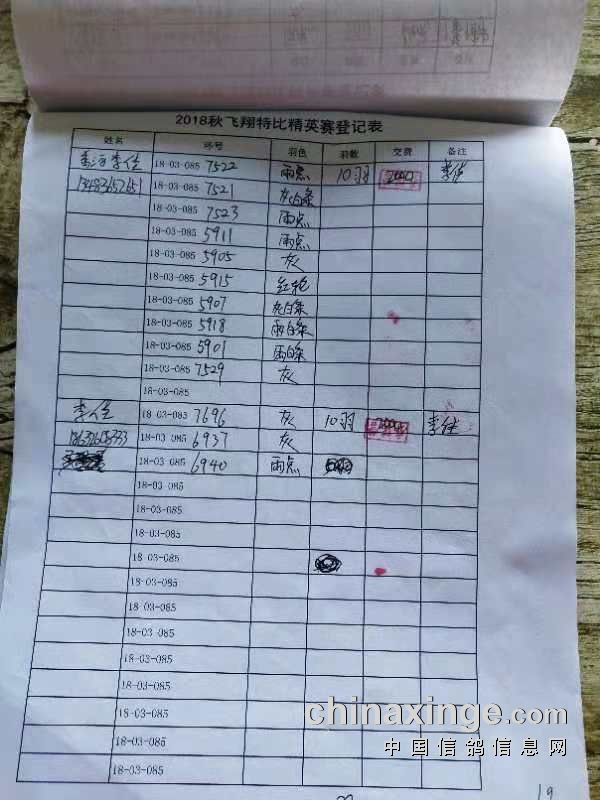 2018秋飞翔特比精英赛登记表
姓名 环号 羽色 羽数 交费 备注
李佳 18-03-085 7522 雨点 10羽 李佳
18-03-085 7521 灰白条
18-03-085 7523 雨点
18-03-085 5911 雨点
18-03-085 5905 灰
18-03-085 5915 红轮
18-03-085 5907 灰白条
18-03-085 5918 雨白条
18-03-085 5901 雨白条
18-03-085 7529 灰
18-03-085
李佳 18-03-085 7696 灰 10羽 李佳
18-03-085 6937 灰
18-03-085 6940 雨点
18-03-085
18-03-085
18-03-085
18-03-085
18-03-085
18-03-085
18-03-085
18-03-085
18-03-085
18-03-085
18-03-085
18-03-085
chinaxinge.com
中国信鸽信息网
19